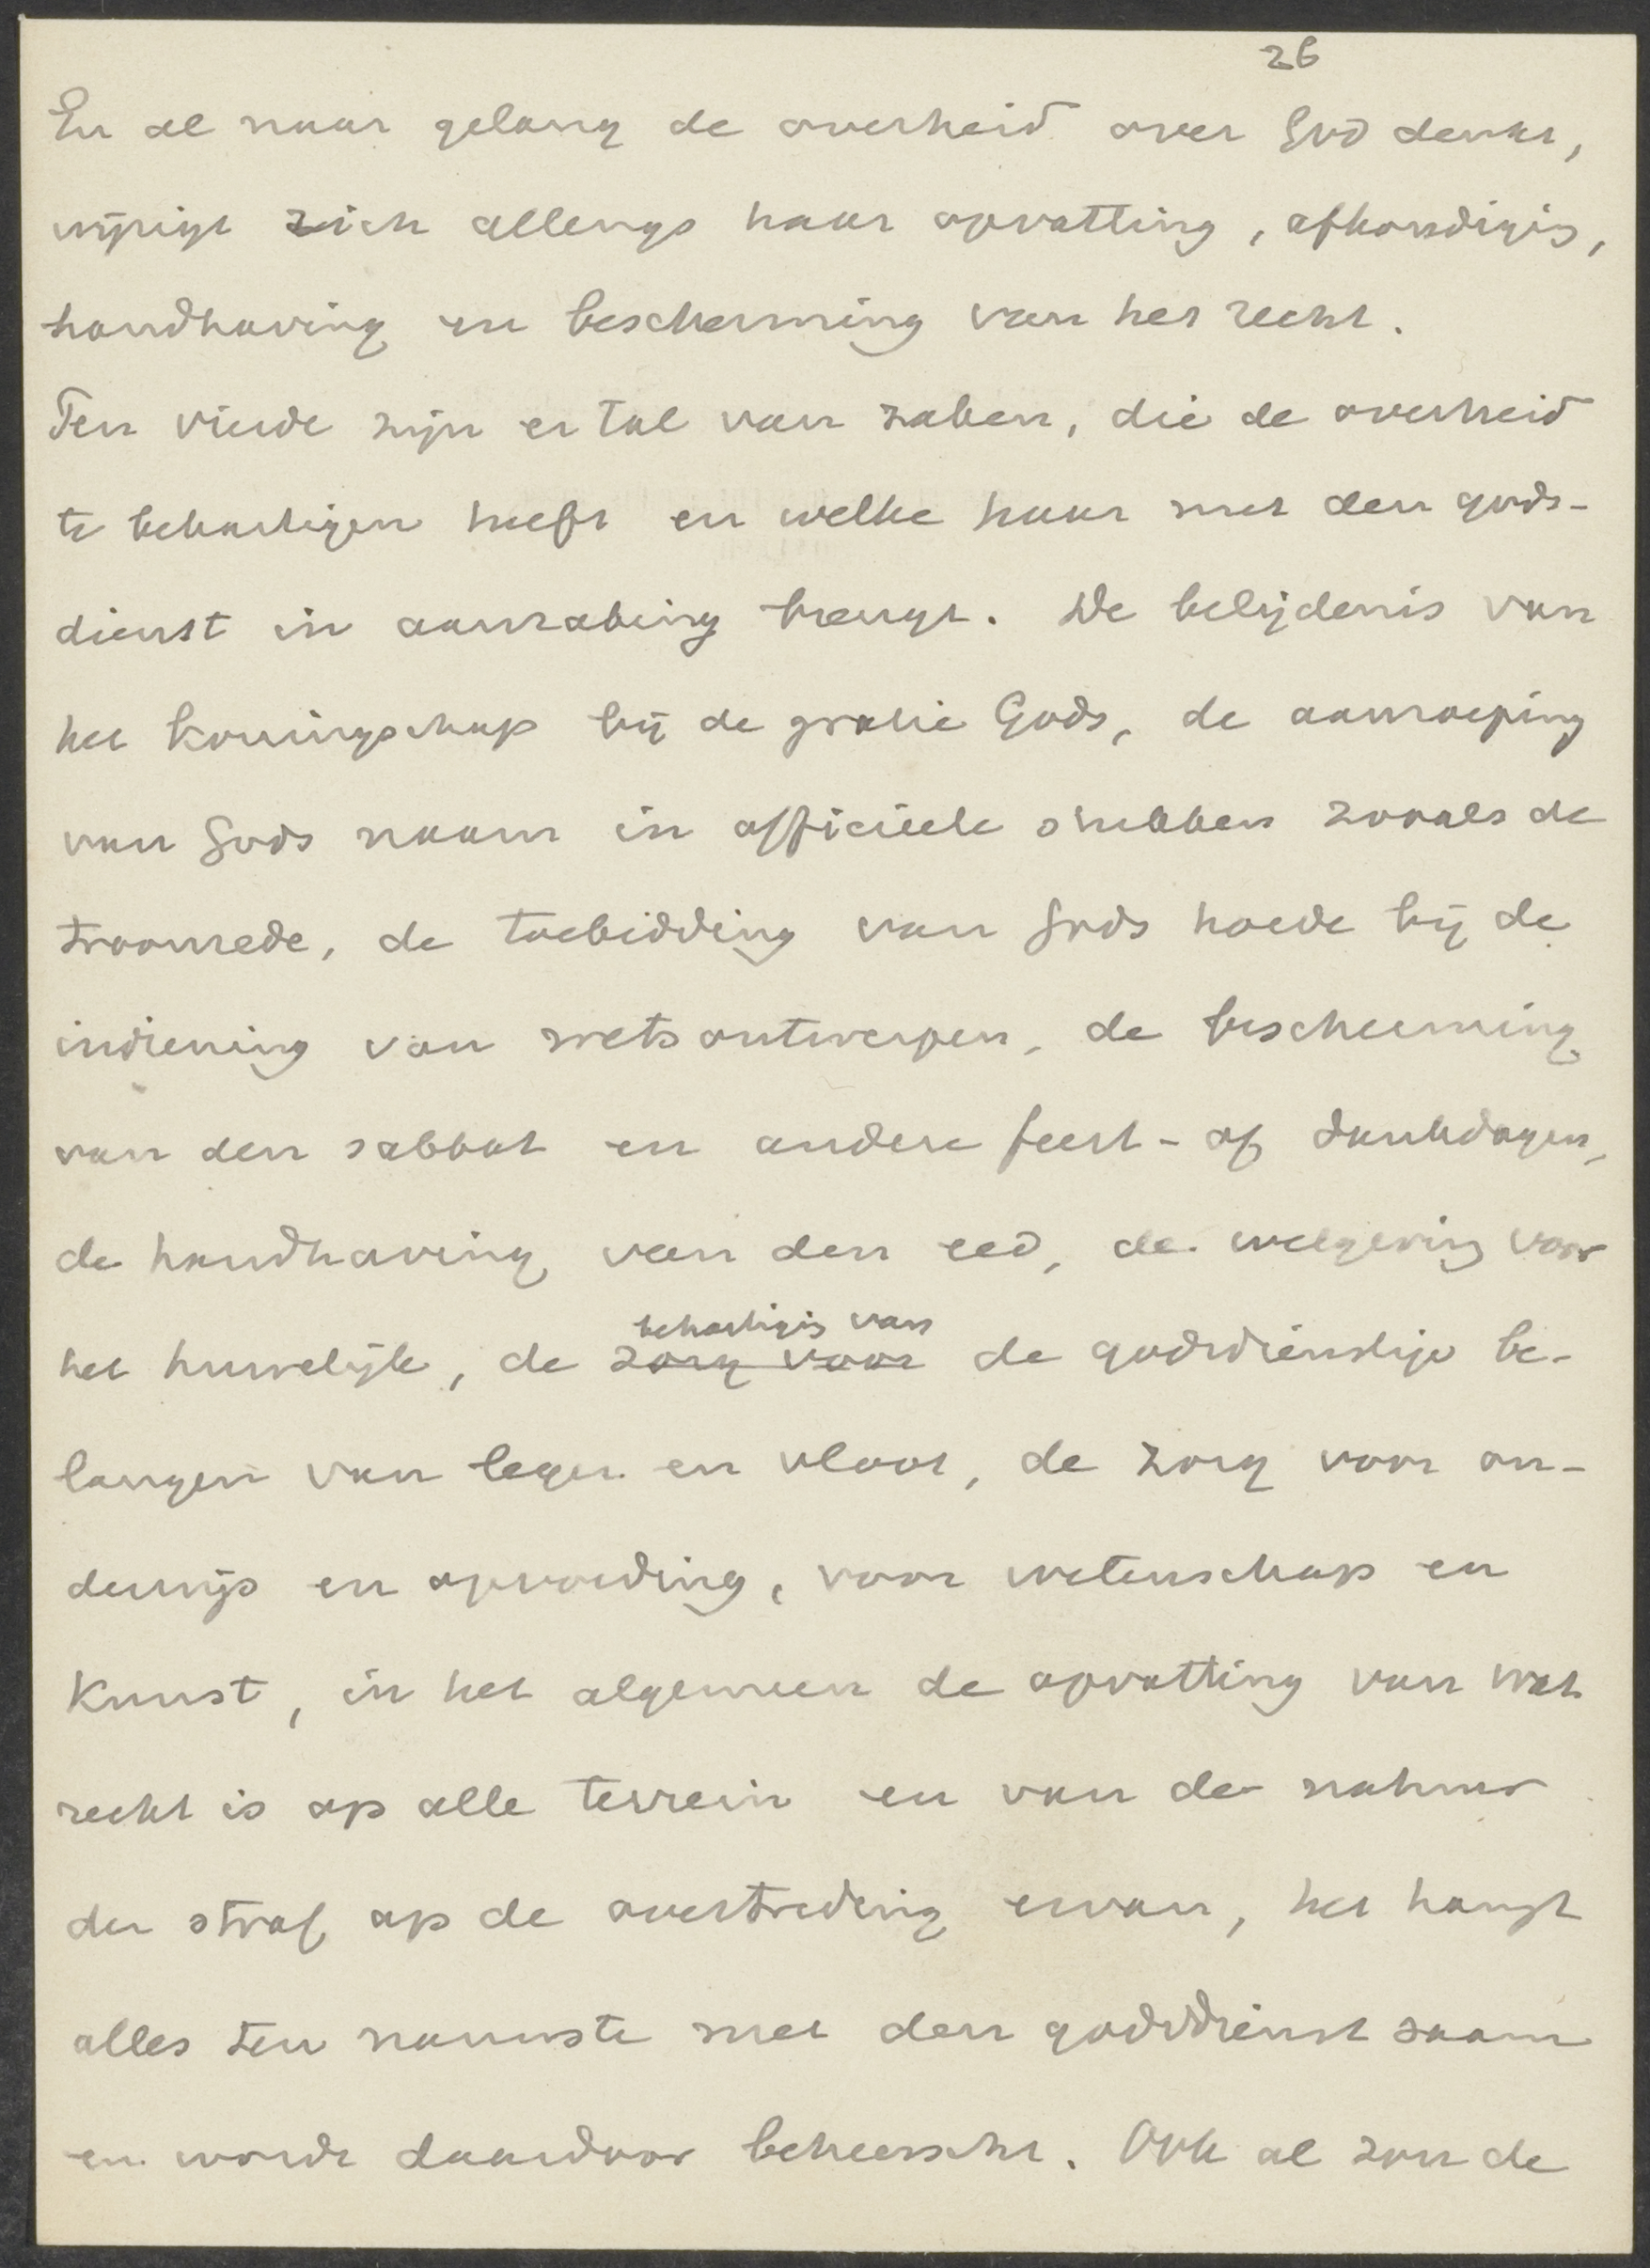 26
En al naar gelang de overheid over God denkt,
wijzigt zich allengs haar opvatting, afkondiging,
handhaving en bescherming van het recht.
Ten vierde zijn er tal van zaken, die de overheid
te behartigen heeft en welke haar met den gods-
dienst in aanraking brengt. De belijdenis van
het koningschap bij de gratie Gods, de aanroeping
van Gods naam in officieele stukken zooals de
troonrede, de toebidding van Gods hoede bij de
indiening van wetsontwerpen, de bescherming
van den sabbat en andere feest- of dankdagen,
de handhaving van den eed, de wetgeving voor
behartiging van
het huwelijk, de zorg voor de godsdienstige be-
langen van leger en vloot, de zorg voor on-
derwijs en opvoeding, voor wetenschap en
kunst, in het algemeen de opvatting van wat
recht is op alle terrein en van de natuur
der straf op de overtreding ervan, het hangt
alles ten nauwste met den godsdienst saam
en wordt daardoor beheerscht. Ook al zou de